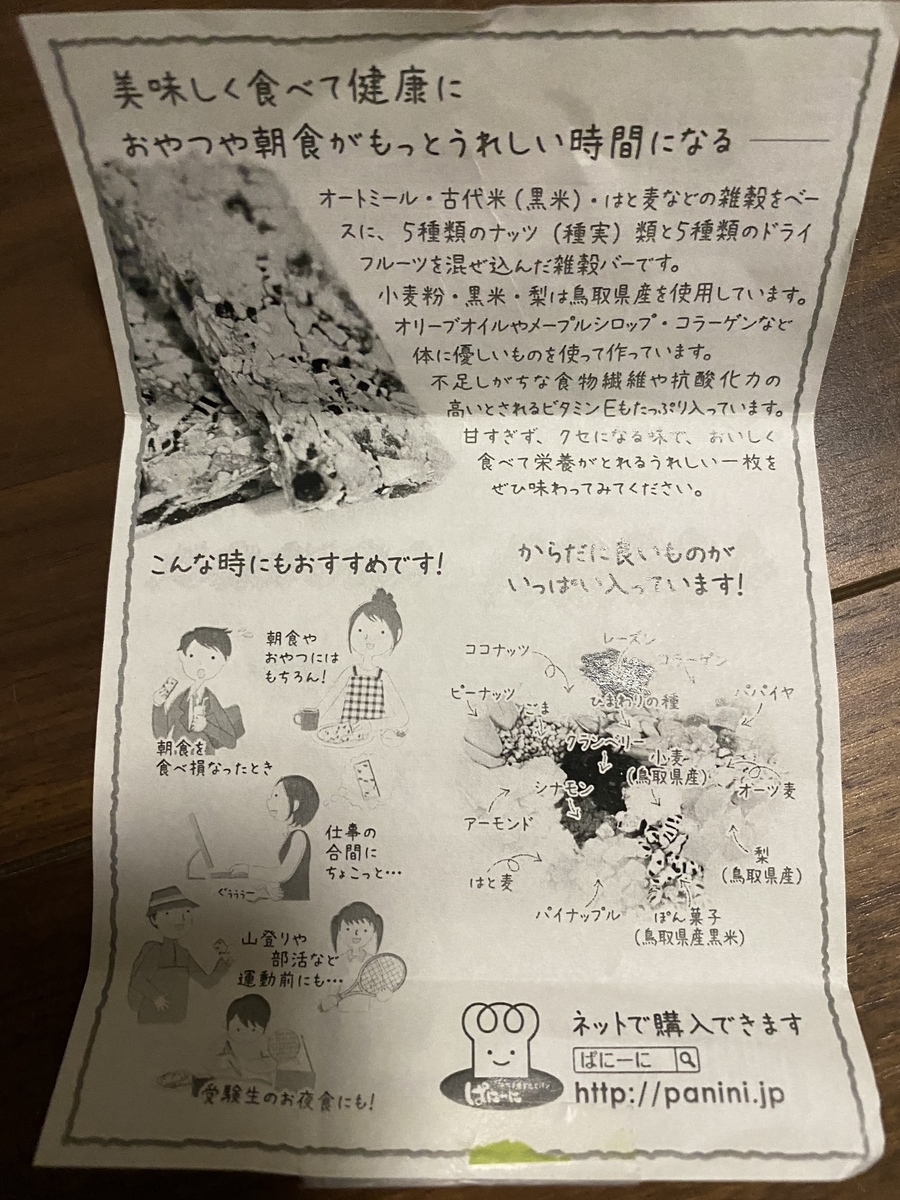 美味しく食べて健康に
おやつや朝食がもっとうれしい時間になる
オートミール・古代米(黒米)・はと麦などの雑穀をベー
スに、5種類のナッツ(種実)類と5種類のドライ
フルーツを混ぜ込んだ雑穀バーです。
小麦粉・黒米・梨は鳥取県産を使用しています。
オリーブオイルやメープルシロップ・コラーゲンなど
体に優しいものを使って作っています。
不足しがちな食物繊維や抗酸化力の
高いとされるビタミンEもたっぷり入っています。
甘すぎず、クセになる味で、おいしく
食べて栄養がとれるうれしい一枚を
ぜひ味わってみてください。
こんな時にもおすすめです!
朝食や
おやつには
もちろん!
朝食を
食べ損なったとき
仕事の
合間に
ちょこっと…
ぐぅぅぅー
山登りや
部活など
運動前にも…
受験生のお夜食にも!
からだに良いものが
いっぱい入っています!
レーズン
ココナッツ
コラーゲン
ピーナッツ
ごま
ひまわりの種
パパイヤ
クランベリー
小麦
(鳥取県産)
シナモン
オーツ麦
アーモンド
梨
(鳥取県産)
はと麦
パイナップル
ぽん菓子
(鳥取県産黒米)
ネットで購入できます
ぱにーに
http://panini.jp
ぱにーに